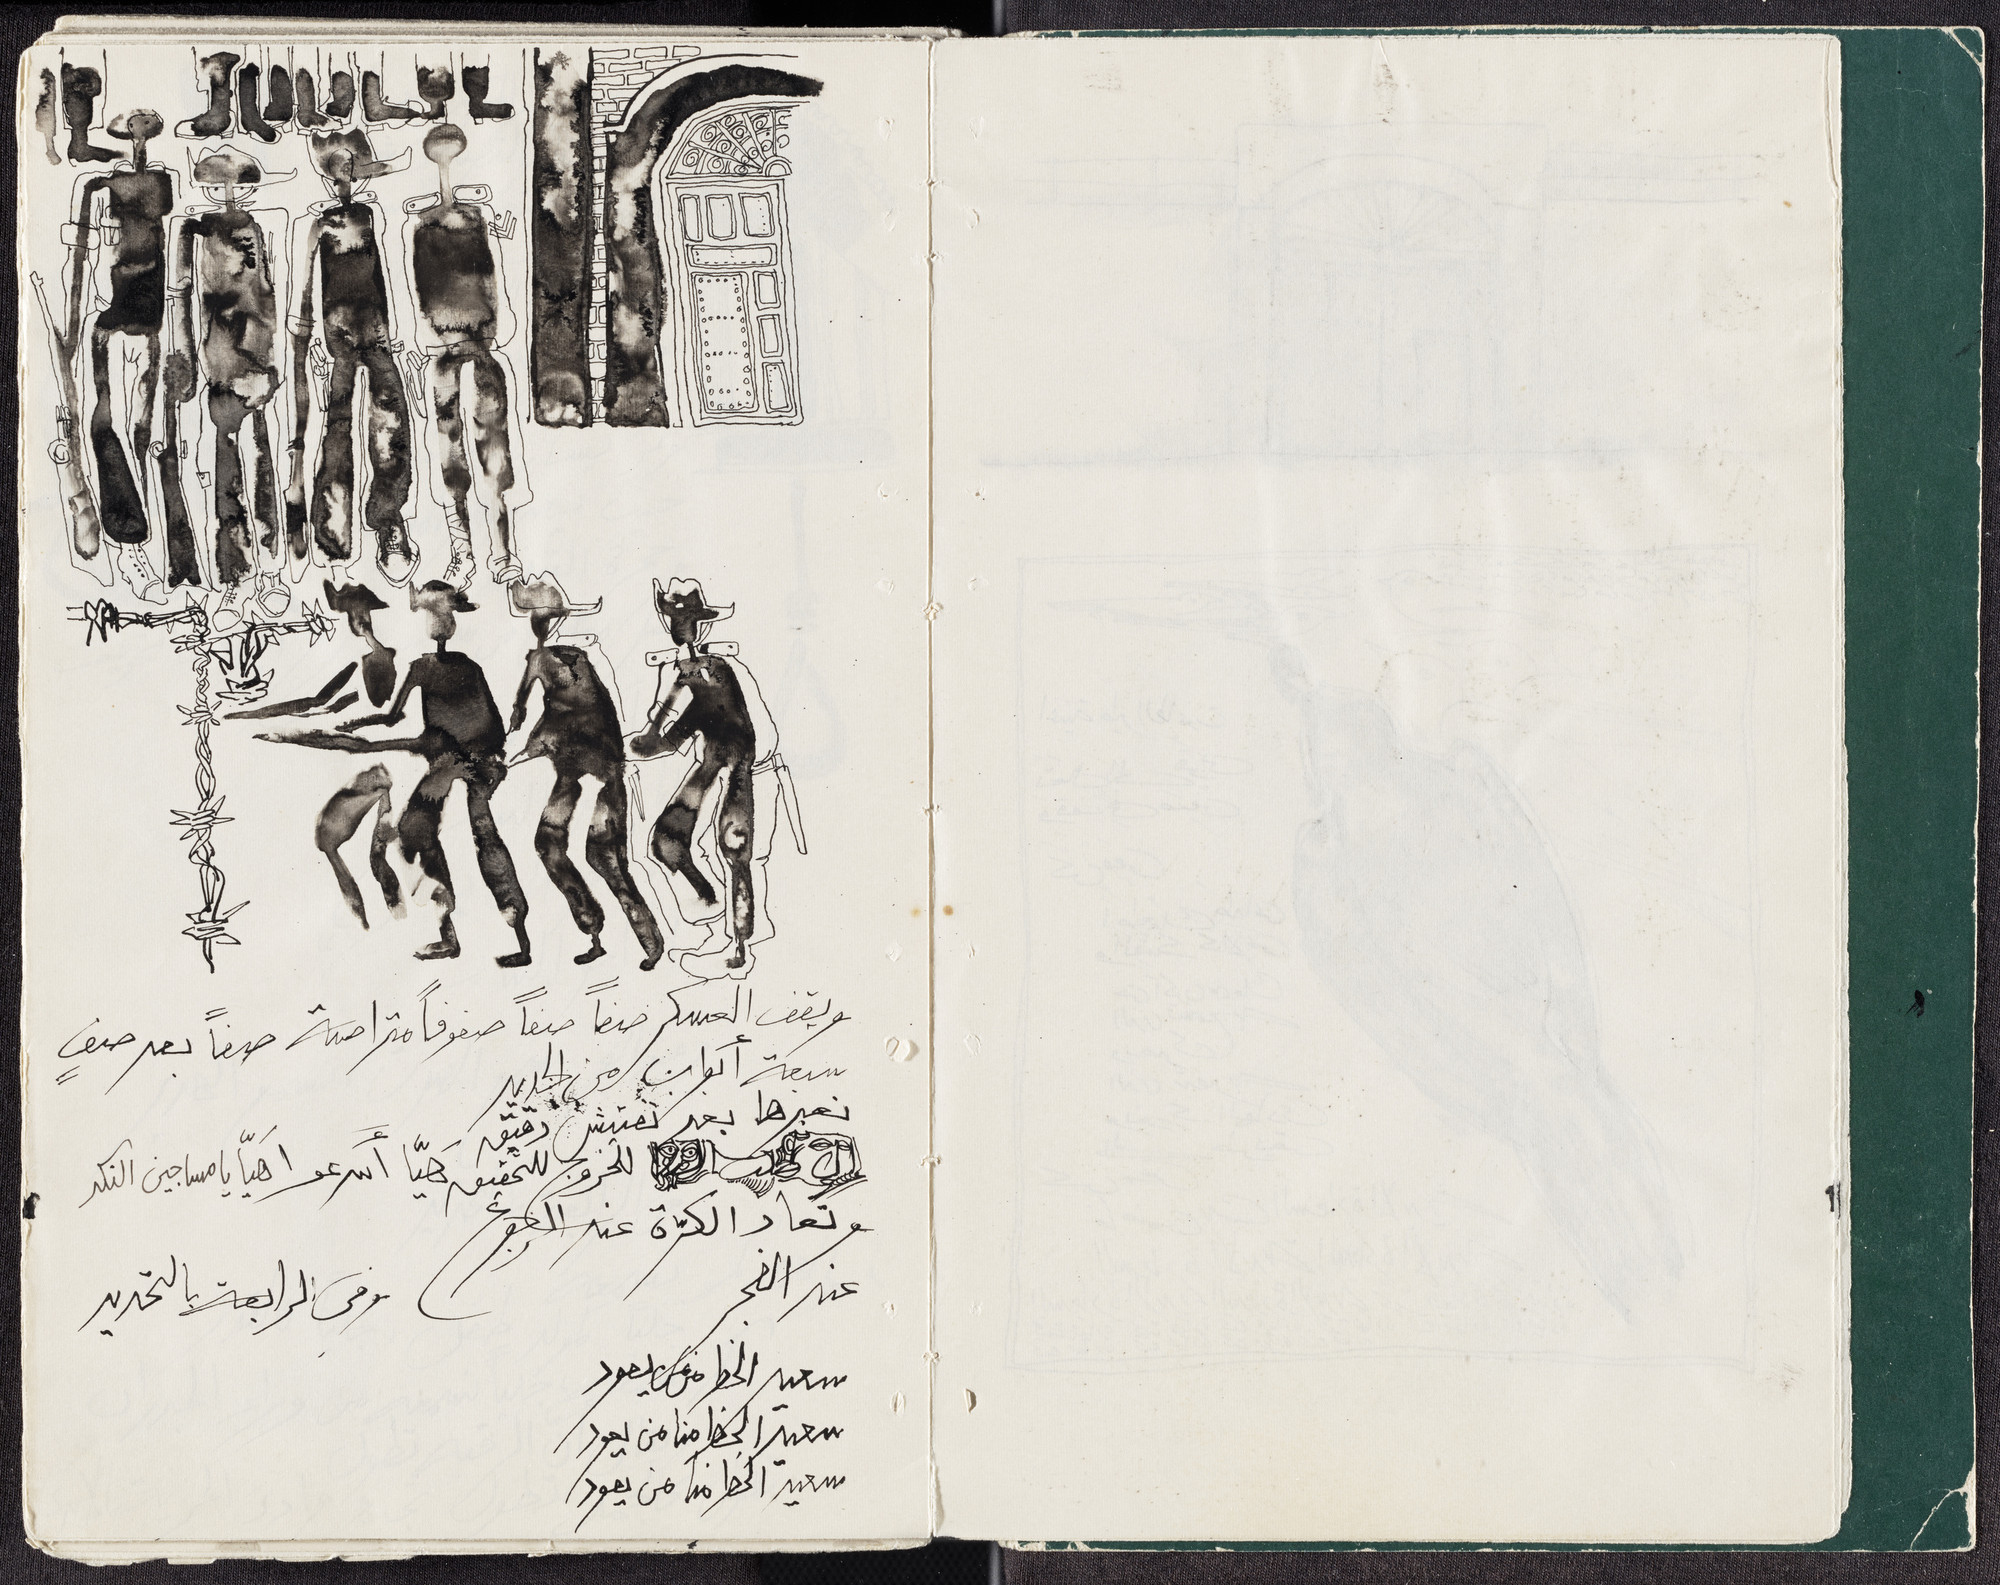 ويقف العسكر صفاً صفاً صفوفاً متراصة صفاً بعد صفٍ
سبعة أبواب من الحديد
نعبرها بعد تفتيش دقيق
للخروج للتحقيق هيّا أسرعوا هيّا يا مساجين النكد
وتعاد الكرّة عند الرجوع
عند الفجر وفى الرابعة بالتحديد
سعيد الحظ من يعود
سعيد الحظ منا من يعود
سعيد الحظ منا من يعود